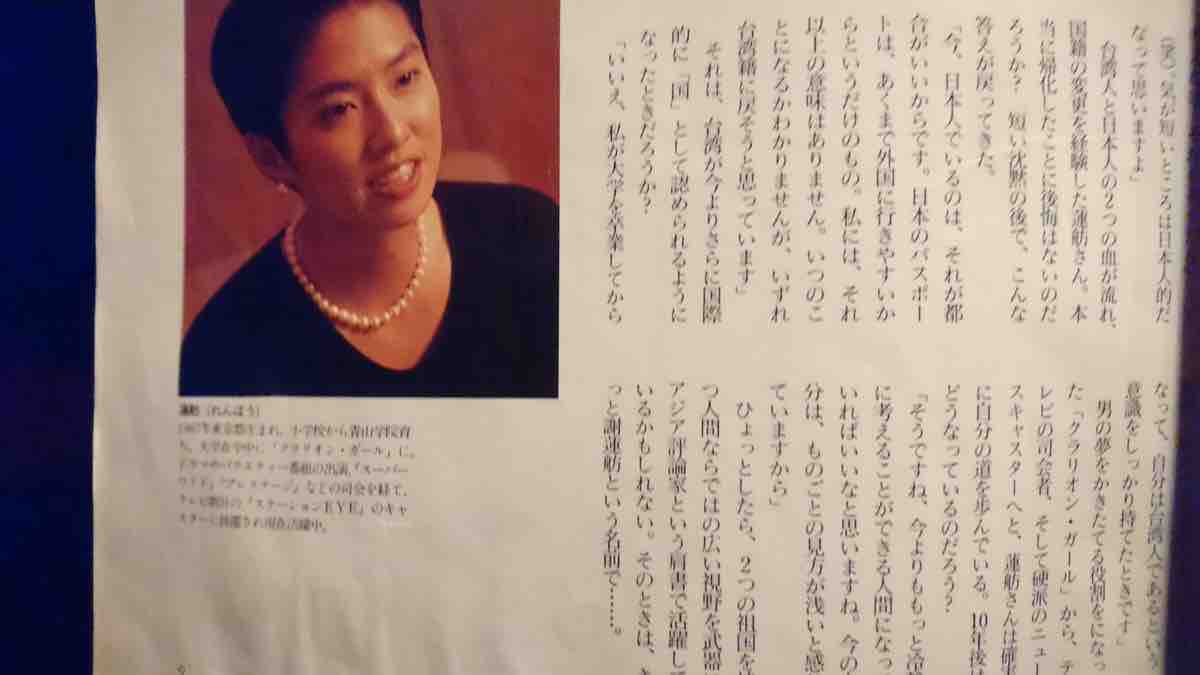 (笑)。気が短いところは日本人的だ
なって思いますよ」
台湾人と日本人の2つの血が流れ、
国籍の変更を経験した蓮舫さん。本
当に帰化したことに後悔はないのだ
ろうか? 短い沈黙の後で、こんな
答えが戻ってきた。
「今、日本人でいるのは、それが都
合がいいからです。日本のパスポー
トは、あくまで外国に行きやすいか
らというだけのもの。私には、それ
以上の意味はありません。いつのこ
とになるかわかりませんが、いずれ
台湾籍に戻そうと思っています」
それは、台湾が今よりさらに国際
的に「国」として認められるように
なったときだろうか?
「いいえ、私が大学を卒業してから
なって、自分は台湾人であるという
意識をしっかり持てたときです」
男の夢をかきたてる役割をになっ
た「クラリオン・ガール」から、テ
レビの司会者、そして硬派のニュー
スキャスターへと、蓮舫さんは確実
に自分の道を歩んでいる。10年後は
どうなっているのだろう?
「そうですね、今よりももっと冷
に考えることができる人間になっ
いればいいなと思いますね。今の
分は、ものごとの見方が浅いと感
ていますから」
ひょっとしたら、2つの祖国を
つ人間ならではの広い視野を武器
アジア評論家という肩書で活躍し
いるかもしれない。そのときは、き
っと謝蓮舫という名前で……。
蓮舫(れんほう)
1967年東京都生まれ。小学校から青山学院育
ち。大学在学中に「クラリオン・ガール」に。
ドラマやバラエティー番組の出演、『スーパー
ワイド』『プレステージ』などの司会を経て、
テレビ朝日の『ステーションEYE』のキャ
スターに抜擢され現在活躍中。